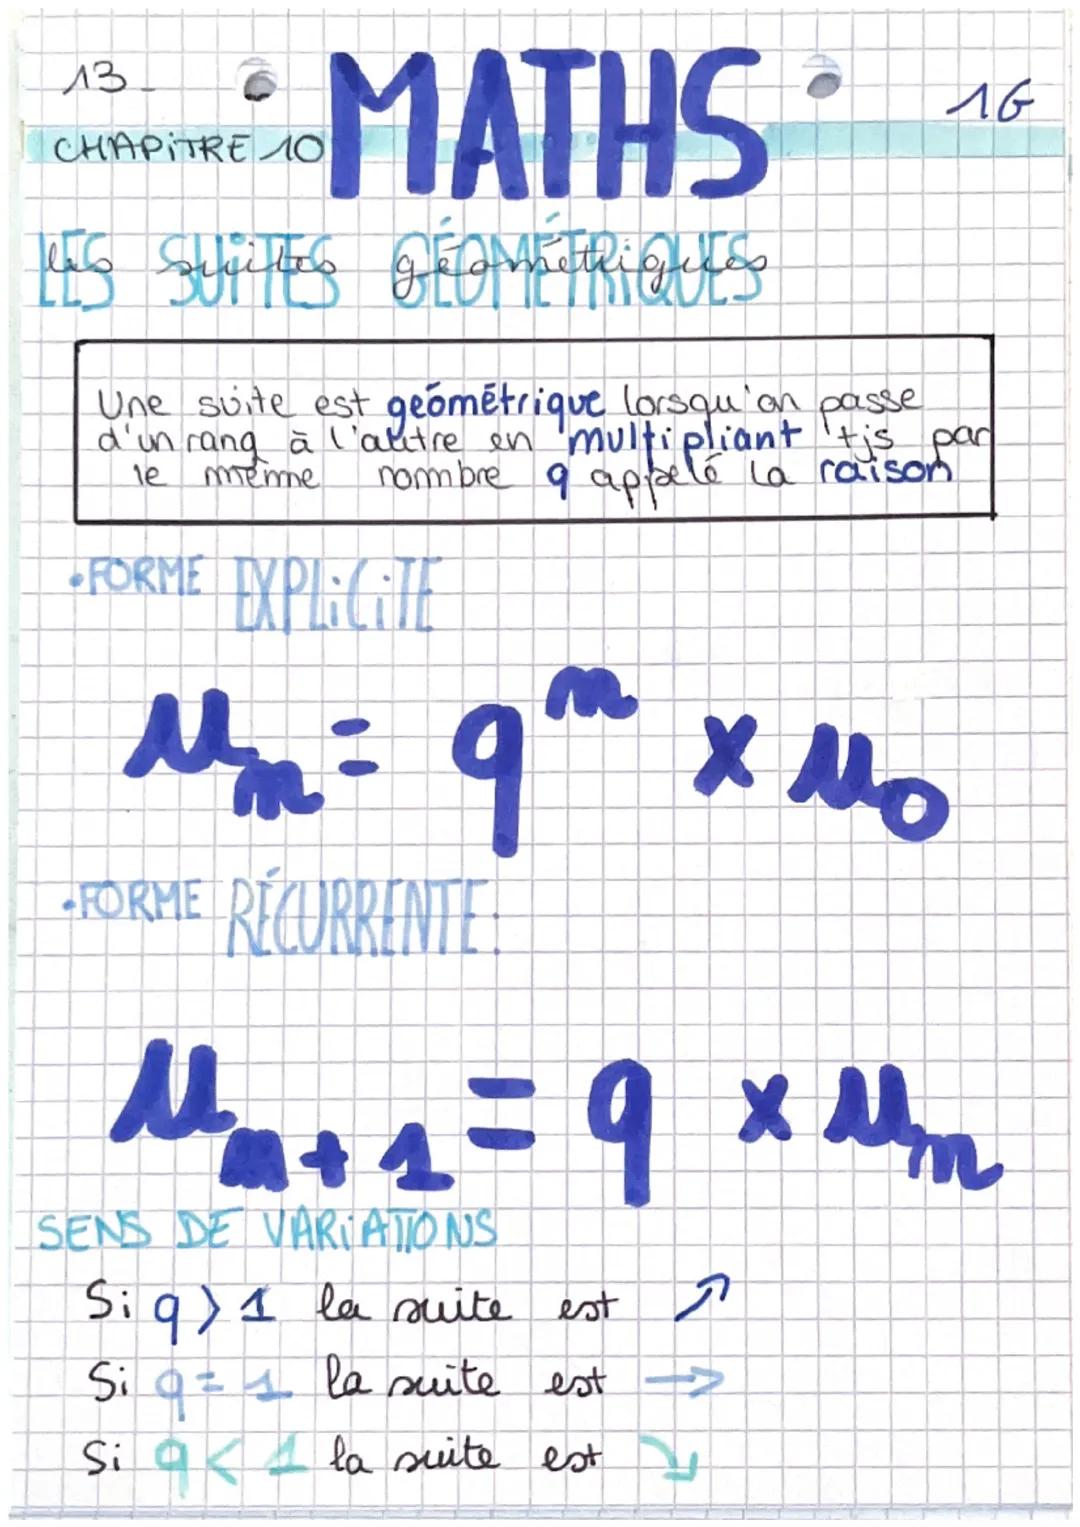 13 MATHS 1G
CHAPiTRE 10
LES SUiTES GÉOMÉTRiQUES
les suites géométriques
Une suite est géométrique lorsqu'on passe
d'un rang à l'autre en multipliant tjs par
le même nombre q appelé la raison
•FORME EXPLiCiTE
un = q^n × u0
•FORME RÉCURRENTE:
un+1 = q × un
SENS DE VARiATIONS
Si q > 1 la suite est ↗
Si q = 1 la suite est →
Si q < 1 la suite est ↘